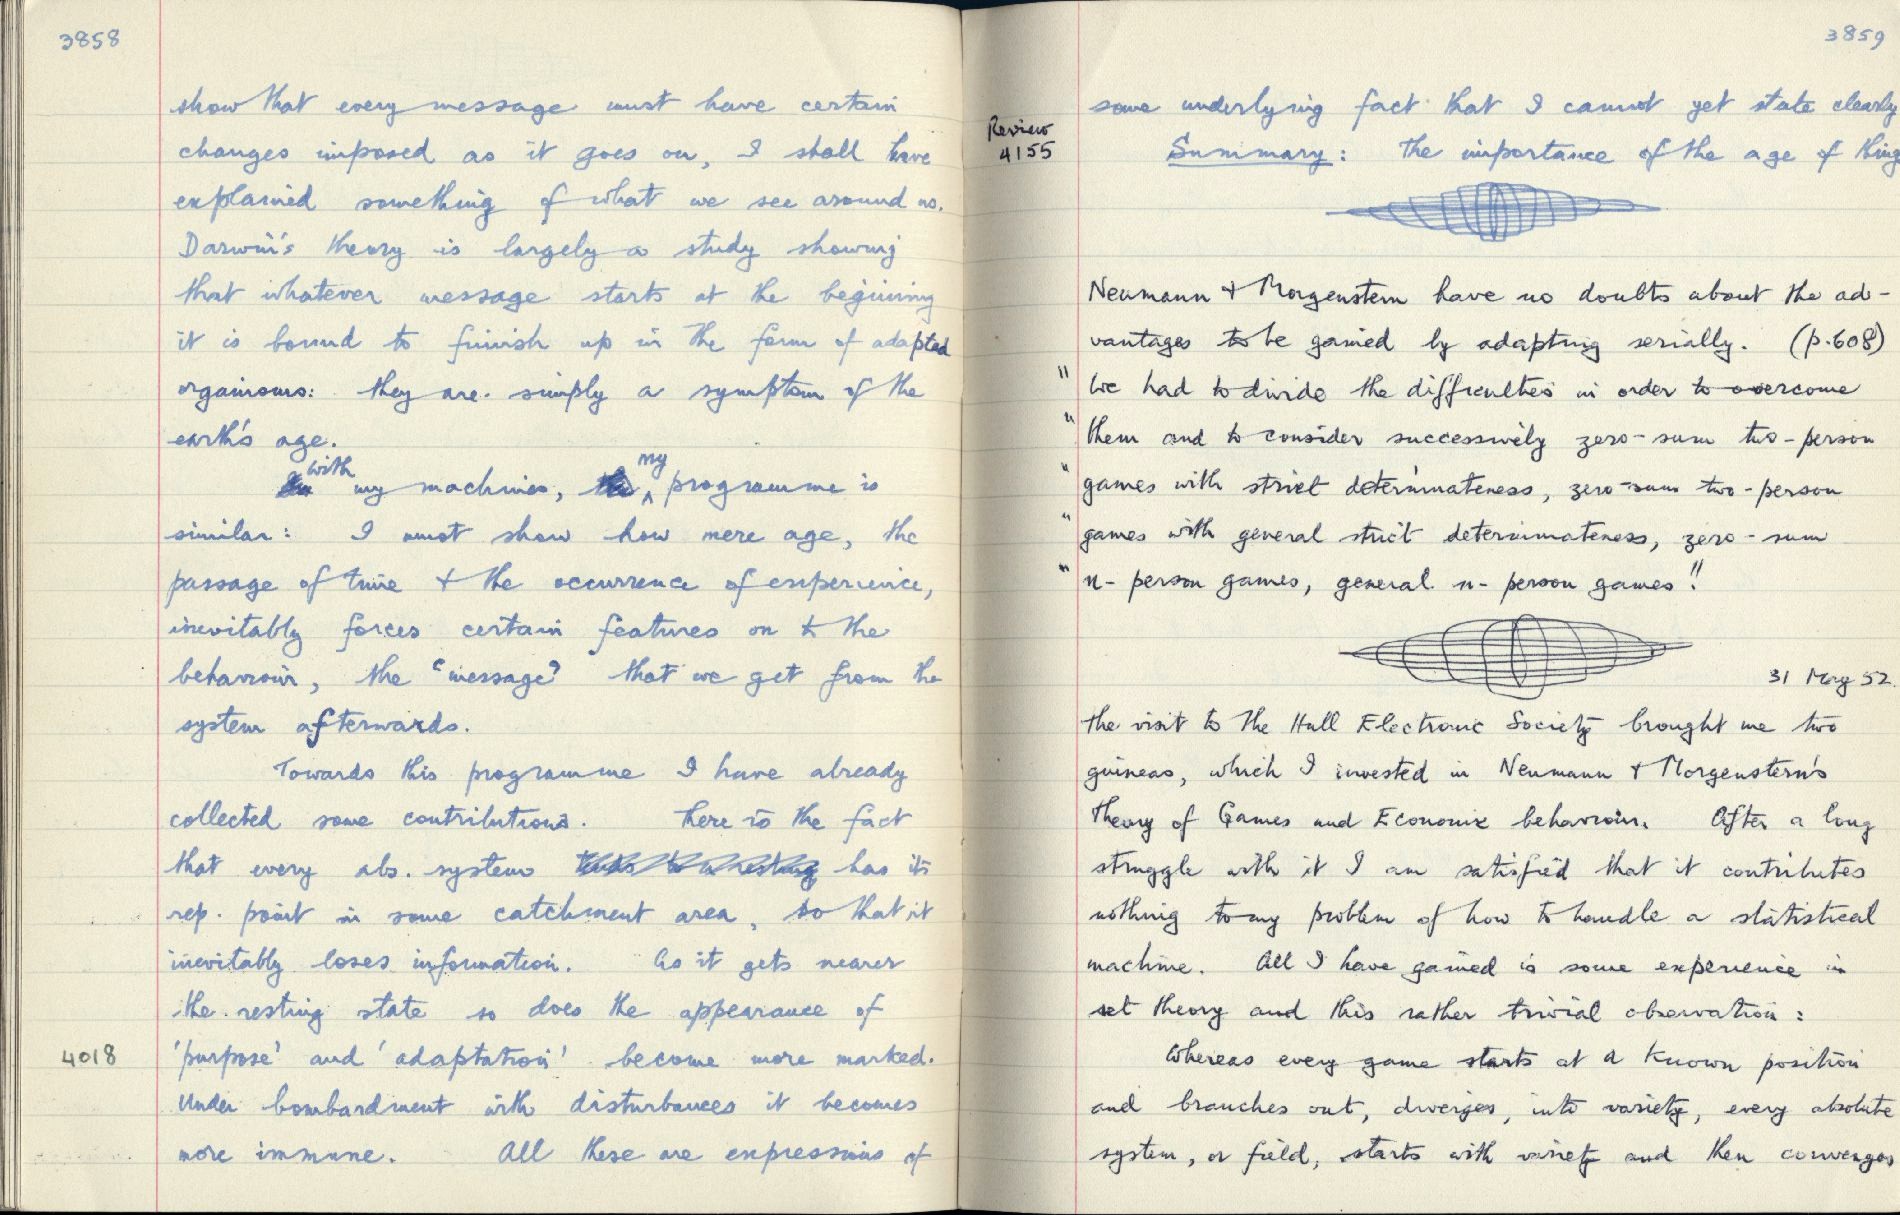 3858
show that every message must have certain
changes imposed as it goes on, I shall have
explained something of what we see around us.
Darwin's theory is largely a study showing
that whatever message starts at the beginning
it is bound to finish up in the form of adapted
organisms: they are simply a symptom of the
earth's age.
with my machines, my programme is
similar: I must show how mere age, the
passage of time & the occurrence of experience,
inevitably forces certain features on to the
behaviour, the "message" that we get from the
system afterwards.
Towards this programme I have already
collected some contributions. There is the fact
that every abs. system has its
rep. point in some catchment area, so that it
inevitably loses information. As it gets nearer
the resting state so does the appearance of
4018
'purpose' and 'adaptation' become more marked.
Under bombardment with disturbances it becomes
more immune. All these are expressions of
3859
some underlying fact that I cannot yet state clearly
Review
4155
Summary: The importance of the age of thing
Neumann & Morgenstern have no doubts about the ad-
vantages to be gained by adapting serially. (p.608)
" We had to divide the difficulties in order to overcome
" them and to consider successively zero-sum two-person
" games with strict determinateness, zero-sum two-person
" games with general strict determinateness, zero-sum
" n-person games, general n-person games!"
31 May 52
The visit to the Hull Electronic Society brought me two
guineas, which I invested in Neumann & Morgenstern's
Theory of Games and Economic behaviour. After a long
struggle with it I am satisfied that it contributes
nothing to my problem of how to handle a statistical
machine. All I have gained is some experience in
set theory and this rather trivial observation:
Whereas every game starts at a known position
and branches out, diverges, into variety, every absolute
system, or field, starts with variety and then converges